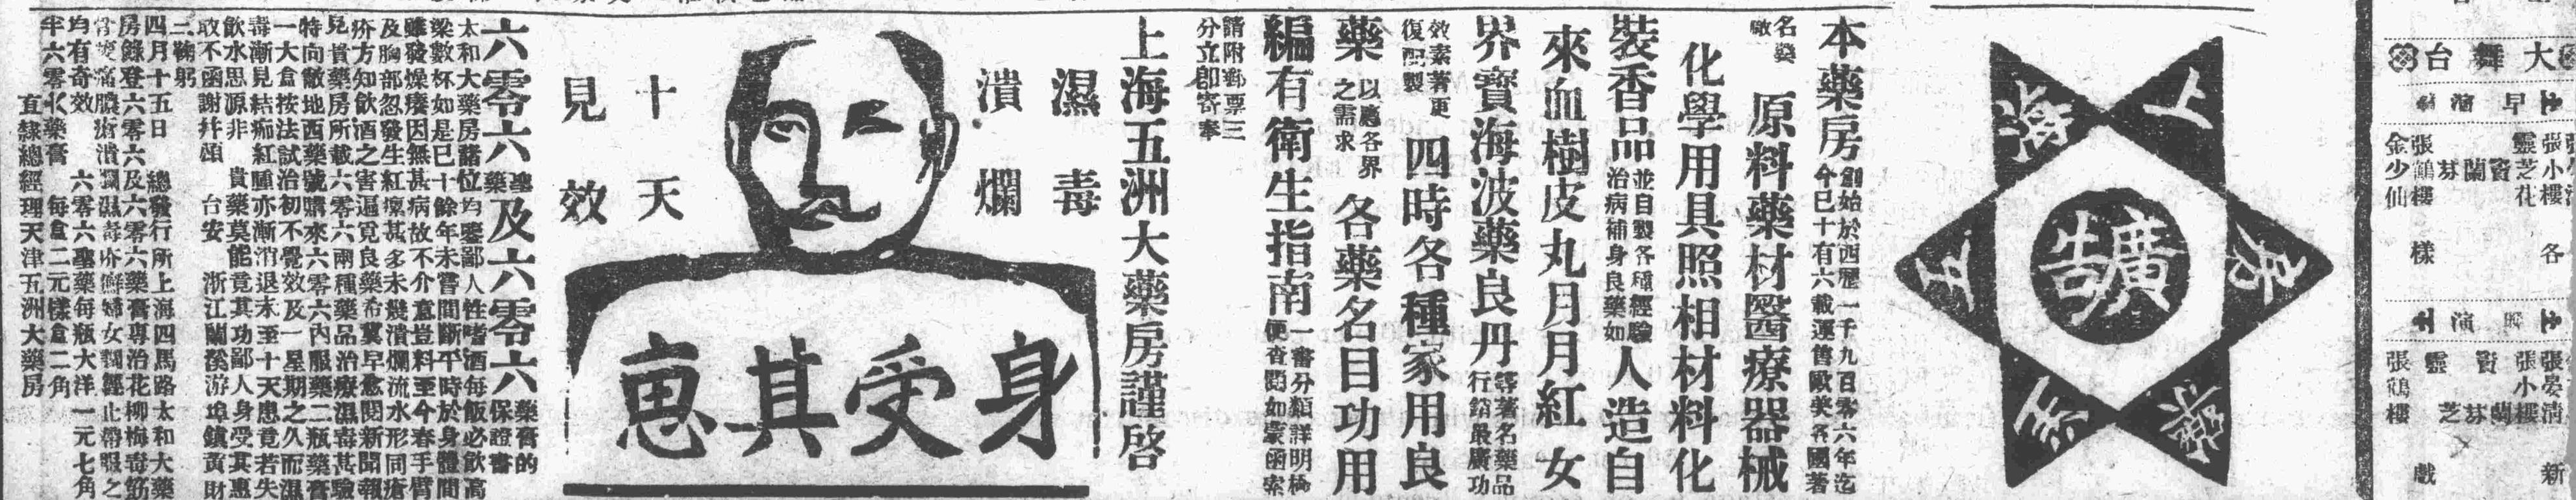 大舞台
早演
張小樓
靈芝花
賢蘭芬
張鶴樓
金少仙
各
樣
演
張晏淸
張小樓
蘭芬
賢
靈芝
張鶴樓
新
戲
上海五洲大藥房
廣告
本藥房創始於西歷一千九百零六年迄今已十有六載運售歐美各國著
名 原料藥材醫療器械
化學用具照相材料化
裝香品並自製各種經驗治病補身良藥如人造自
來血樹皮丸月月紅女
界寶海波藥良丹等著名藥品行銷最廣功
效素著更復配製四時各種家用良
藥以應各界之需求各藥名目功用
編有衛生指南一書分類詳明檢便查閱如蒙函索
請附郵票三分立卽寄奉
上海五洲大藥房謹啓
濕毒
潰爛
十天
見效
身受其惠
六零六藥及六零六藥膏的保證書
太和大藥房諸位均鑒鄙人性嗜酒每飯必飲高
粱數杯如是已十餘年未嘗間斷平時於身體間
雖發燥癢因無甚病故不介意豈料至今春手臂
及胸部忽發生紅瘰甚多未幾潰爛流水形同瘡
疥方知飲酒之害遍覓良藥希冀早愈閱新聞報
見貴藥房所載六零六兩種藥品治療濕毒甚驗
特向敝地西藥號購來六零六內服藥二瓶藥膏
一大盒按法試治初不覺效及一星期之久而濕
毒漸見結痂紅腫亦漸消退未至十天患竟若失
飲水思源非 貴藥莫能竟其功鄙人身受其惠
敢不函謝幷頌 台安 浙江蘭溪游埠鎮黃財
二鞠躬
四月十五日 總發行所上海四馬路太和大藥
房錄登六零六及六零六藥膏專治花柳梅毒筋
骨疼痛膿瘡潰爛濕毒疥癬婦女 經止帶服之
均有奇效 六零六藥每瓶大洋一元七角
半六零六藥膏 每盒二元樣盒二角
直隸總經理天津五洲大藥房